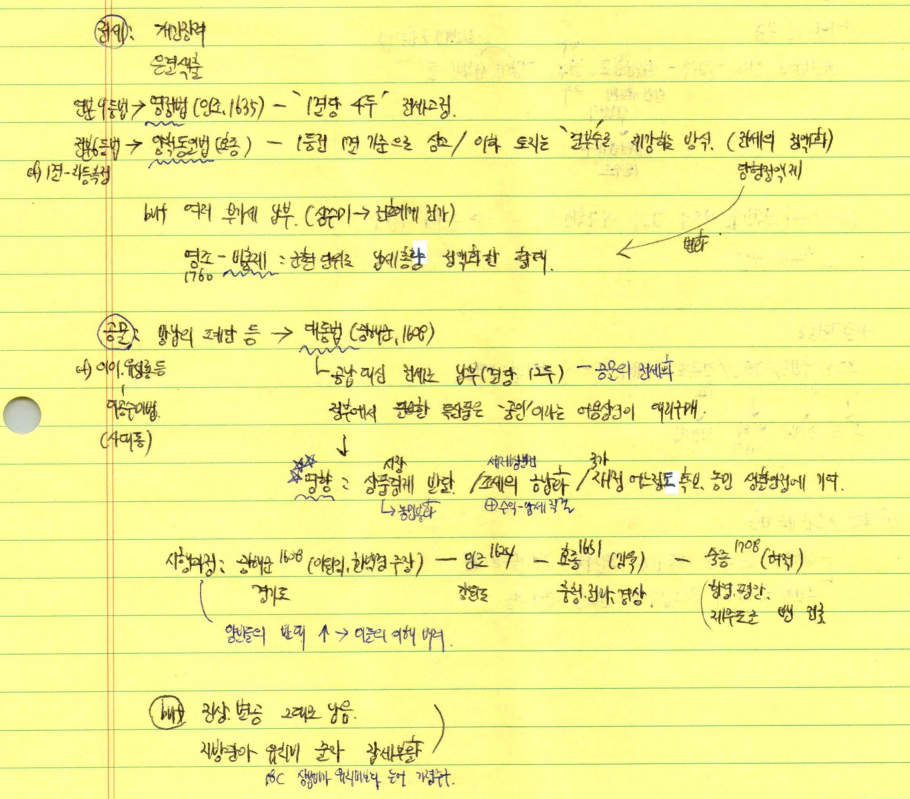 전세: 개간장려
은결색출
연분9등법 → 영정법 (인조, 1635) - "1결당 4두" 전세고정.
전분6등법 → 양척동일법 (효종) - 1등전 1결 기준으로 삼고 / 이하 토지는 '결부수'로 계산하는 방식. (전세의 정액화)
but 여러 부가세 납부. (삼수미 → 전호에게 전가)
변화
영조 - 비총제 : 군현단위로 납세총량 정액화한 형태.
1760
공물: 방납의 폐단 등 → 대동법 (광해군, 1608)
예) 이이, 유성룡 등
공납 대신 전세로 납부 (결당 12두) - 공물의 전세화
대공수미법.
정부에서 필요한 특산품은 '공인'이라는 어용상인이 대리구매.
↓
☆☆ 영향 : 상품경제 발달 / 조세의 금납화 / 재정 어느정도 확보, 농민 생활안정에 기여.
시장
국가
→ 농민분화
시행과정 : 광해군 1608 (이원익, 한백겸 주장) - 인조 1624 - 효종 1651 (김육) - 숙종 1708 (허적)
경기도
강원도
충청.전라.경상.
함경.평안.
제주도로 뺀 전국
양반들의 반대 ↑ → 이들의 이해 반영.
but 진상.별공 그대로 남음.
지방관아 유치비 줄자 잡세부활